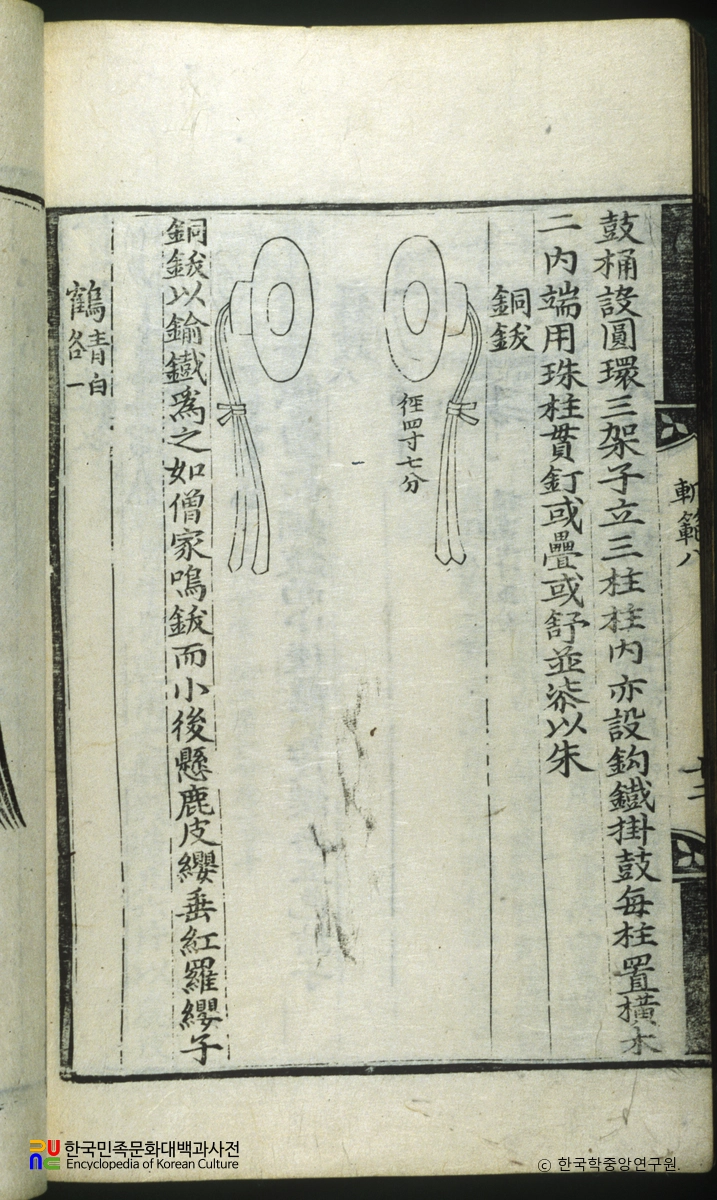 鼓桶設圓環三架子立三柱柱內亦設鈎鐵掛鼓每柱置橫木
二內端用珠柱貫釘或疊或舒並漆以朱
銅鈸
徑四寸七分
銅鈸以鍮鐵爲之如僧家鳴鈸而小後懸鹿皮纓垂紅羅纓子
鶴靑白各一
範八
十二
한국민족문화대백과사전
Encyclopedia of Korean Culture
© 한국학중앙연구원